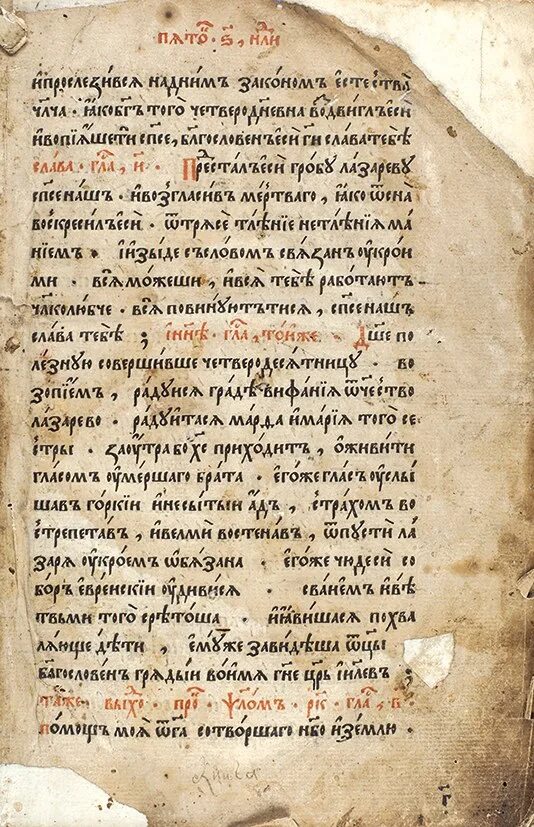 пѧто̑. ѕ҃, нлⷣи
ѝпрослезивсѧ наднимъ закономъ естества̀
чл҃ча . ꙗ́кобг҃ъ того̀ четвероднⷩевна воⷥдвиглъеси̑
ѝвопїѧше́ти спс҃е, бл҃гословенъеси̑ гн҃и слава тебѣ
слава. гла̑, и҃.  Преⷣсталъеси̑ гробꙋ̀ ла́зареву
спс҃енашъ . ѝвозгласивъ ме́ртваго, ꙗ́ко ѿсна̀
воскреси́лъеси̑ . ѿтрѧсѐ тлѣ́нїе нетлѣ́нїѧ ма
нїемъ . ѝзы́де съсло́вомъ свѧ́занъ оу҆кро́и
ми . всѧ̑мо́жеши, ѝвсѧ̑ тебѣ̀ рабо́таютъ
чл҃колю́бче . всѧ̑ повинꙋ́ютътисѧ, спс҃енашъ
сла́ва тебѣ̀ ; ѝнн҃ѣ. гла̑, то́иже. Дш҃е по
ле́знꙋю соверши́вше четвередесѧ́тницꙋ . во
зопїе́мъ, ра́дꙋисѧ гра́де виѳа́нїѧ ѿче́ство
ла́зарево . ра́дꙋитасѧ ма́рѳа ѝмарі́ѧ того̀ се
стры̀ . заоу́тра бо хс҃ прихо́дитъ, ѡ҆живи́ти
гла́сомъ оу҆ме́ршаго бра́та . его́же гла́съ оу҆слы́
шавъ го́ркїи ѝнесы́тыи а́дъ, стра́хомъ во
стрепета́въ, ѝвельмѝ востена́въ, ѿпꙋстѝ ла́
зарѧ оу҆кро́емъ ѡ҆бѧ́зана . его́же чюдесѝ со
бо́ръ евре́искїи оу҆диви́сѧ . сва́иемъ ѝвѣ́
твьми того̀ срѣ́тоша . ѝꙗ҆ви́шасѧ похва
лѧ́юще дѣ́ти, емꙋ́же зави́дѣша ѿцы̀
благослове́нъ грѧды́и во́имѧ гн҃е цр҃ь іи҃левъ ;
та́же. выхо̑. про̑. ѱло́мъ. рк҃г. гла̑, в҃.
по́мощь моѧ̀ ѿга̀ сотво́ршаго нб҃о ѝзе́млю .
г҃